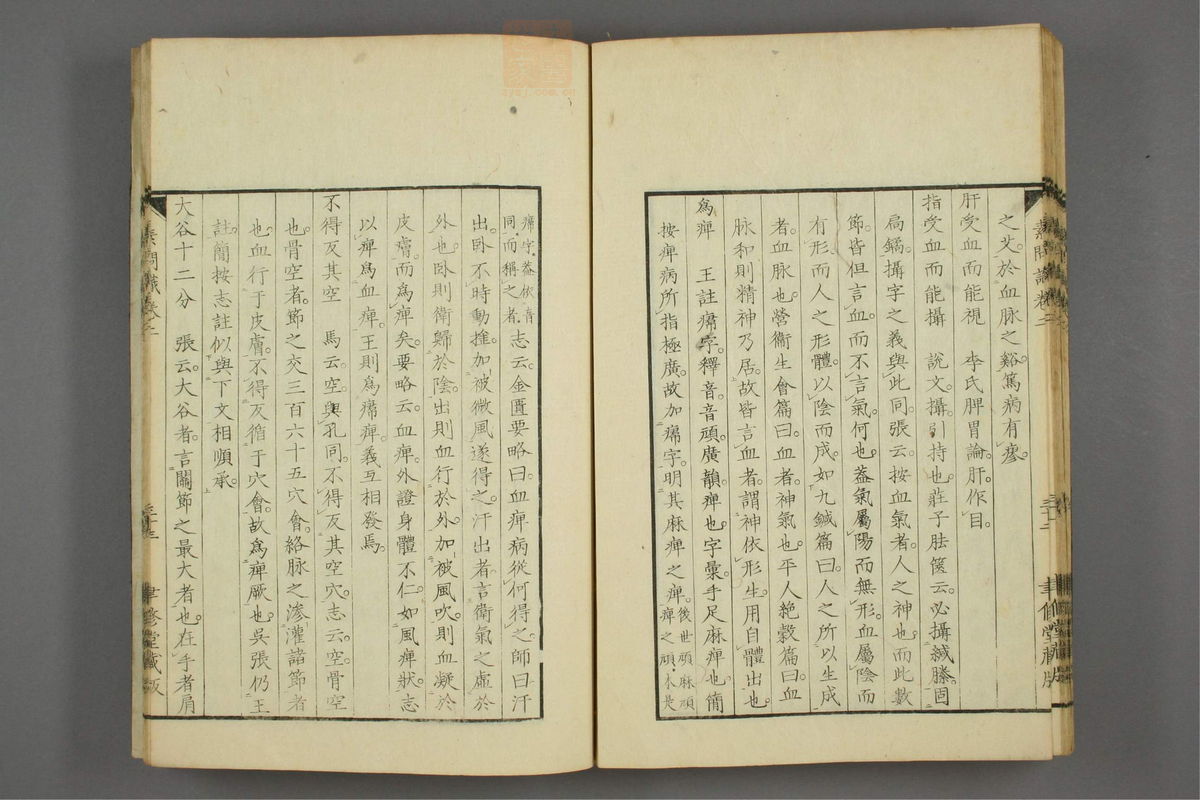 之艾於血脉之谿篤病有瘳
肝受血而能視　李氏脾胃論肝作目
指受血而能攝　説文攝引持也莊子胠篋云必攝緘縢固
扃鐍攝字之義與此同張云按血氣者人之神也而此數
節皆但言血而不言氣何也蓋氣屬陽而無形血屬陰而
有形而人之形體以陰而成如九鍼篇曰人之所以生成
者血脉也營衞生會篇曰血者神氣也平人絶穀篇曰血
脉和則精神乃居故皆言血者謂神依形生用自體出也
爲痺　王註㾽字釋音音頑廣韻痺也字彙手足麻痺也簡
按痺病所指極廣故加㾽字明其麻痺之痺後世頑麻頑
痺之頑本是
㾽字蓋依音
同而稱之者志云金匱要略曰血痺病從何得之師曰汗
出臥不時動搖加被微風遂得之汗出者言衞氣之虛於
外也臥則衞歸於陰出則血行於外加被風吹則血凝於
皮膚而爲痺矣要略云血痺外證身體不仁如風痺狀志
以痺爲血痺王則爲㾽痺義互相發焉
不得反其空　馬云空與孔同不得反其空穴志云空骨空
也骨空者節之交三百六十五穴會絡脉之滲灌諸節者
也血行于皮膚不得反循于穴會故爲痺厥也吳張仍王
註簡按志註似與下文相順承
大谷十二分　張云大谷者言關節之最大者也在手者肩
素問識卷二
聿修堂藏版